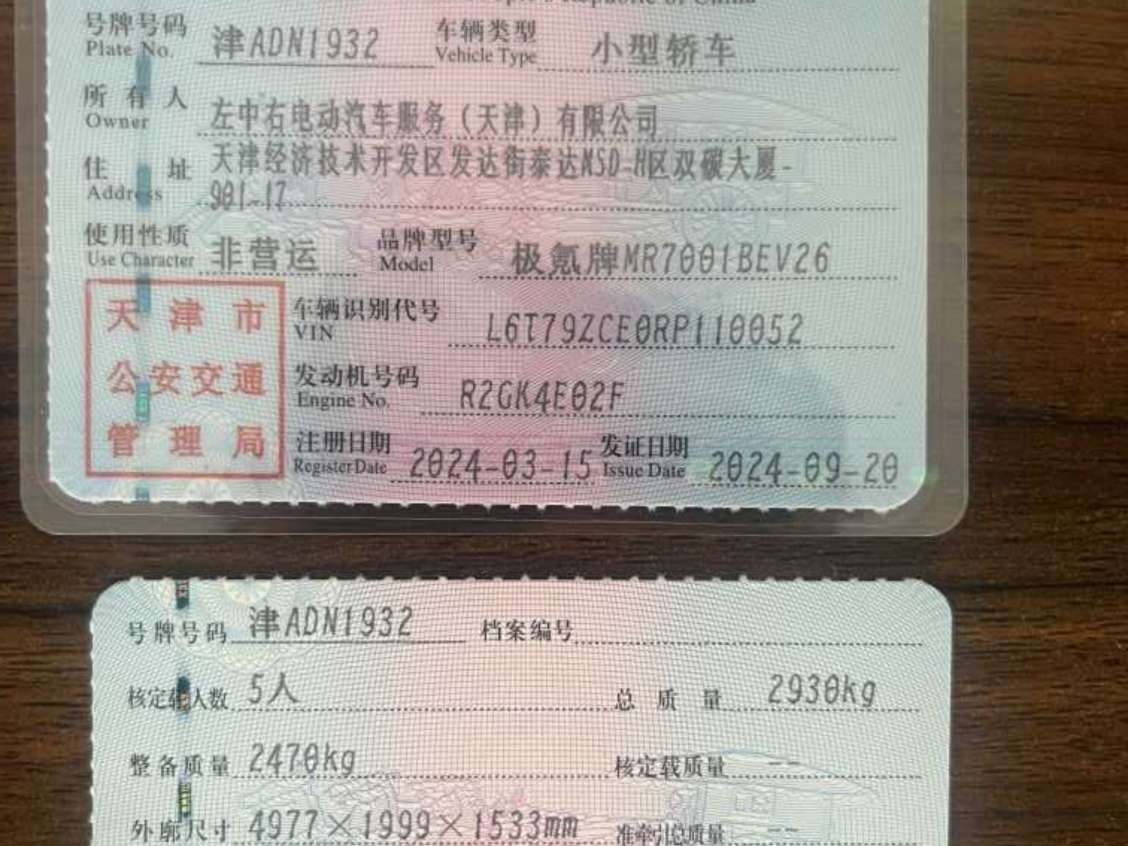 People's Republic of China
号牌号码 津ADN1932 车辆类型 小型轿车
Plate No. Vehicle Type
所有人 左中右电动汽车服务（天津）有限公司
Owner
住址 天津经济技术开发区发达街泰达MSD-H区双碳大厦-
Address 901-17
使用性质 非营运 品牌型号 极氪牌MR7001BEV26
Use Character Model
天津市
公安交通
管理局
车辆识别代号 L6T79ZCE0RP110052
VIN
发动机号码 R2GK4E02F
Engine No.
注册日期 2024-03-15 发证日期 2024-09-20
Register Date Issue Date
号牌号码 津ADN1932 档案编号
核定载人数 5人 总质量 2930kg
整备质量 2470kg 核定载质量 --
外廓尺寸 4977×1999×1533mm 准牵引总质量 --